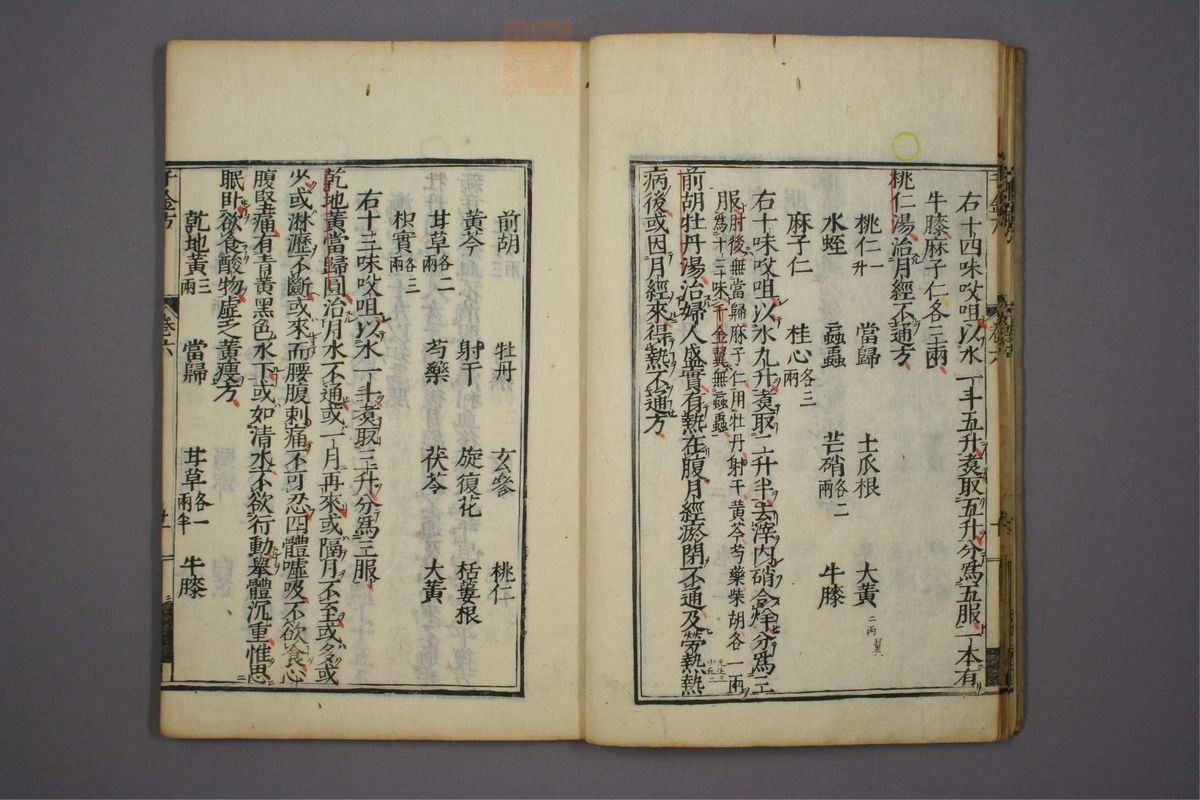 右十四味㕮咀以水一斗五升煑取五升分爲五服一本有
牛膝麻子仁各三兩
桃仁湯治月經不通方
桃仁一升　當歸　土瓜根　大黃二兩翼
水蛭　蝱蟲　芒硝各二兩　牛膝
麻子仁　桂心各三兩
右十味㕮咀以水九升煑取三升半去滓內硝令烊分爲三
服肘後無當歸麻子仁用牡丹射干黃芩芍藥柴胡各一兩爲十三味千金翼無蝱蟲
前胡牡丹湯治婦人盛實有熱在腹月經瘀閉不通及勞熱熱
病後或因月經來得熱不通方
前胡　牡丹　玄參　桃仁
黃芩　射干　旋復花　栝蔞根
甘草各二兩　芍藥　茯苓　大黃
枳實各三兩
右十三味㕮咀以水一斗煑取三升分爲三服
乾地黃當歸圓治月水不通或一月再來或隔月不至或多或
少或淋瀝不斷或來而腰腹刺痛不可忍四體噓吸不欲食心
腹堅痛有青黃黑色水下或如清水不欲行動舉體沉重惟思
眠臥欲食酸物虛乏黃瘦方
乾地黃三兩　當歸　甘草各一兩半　牛膝
千金方　卷六